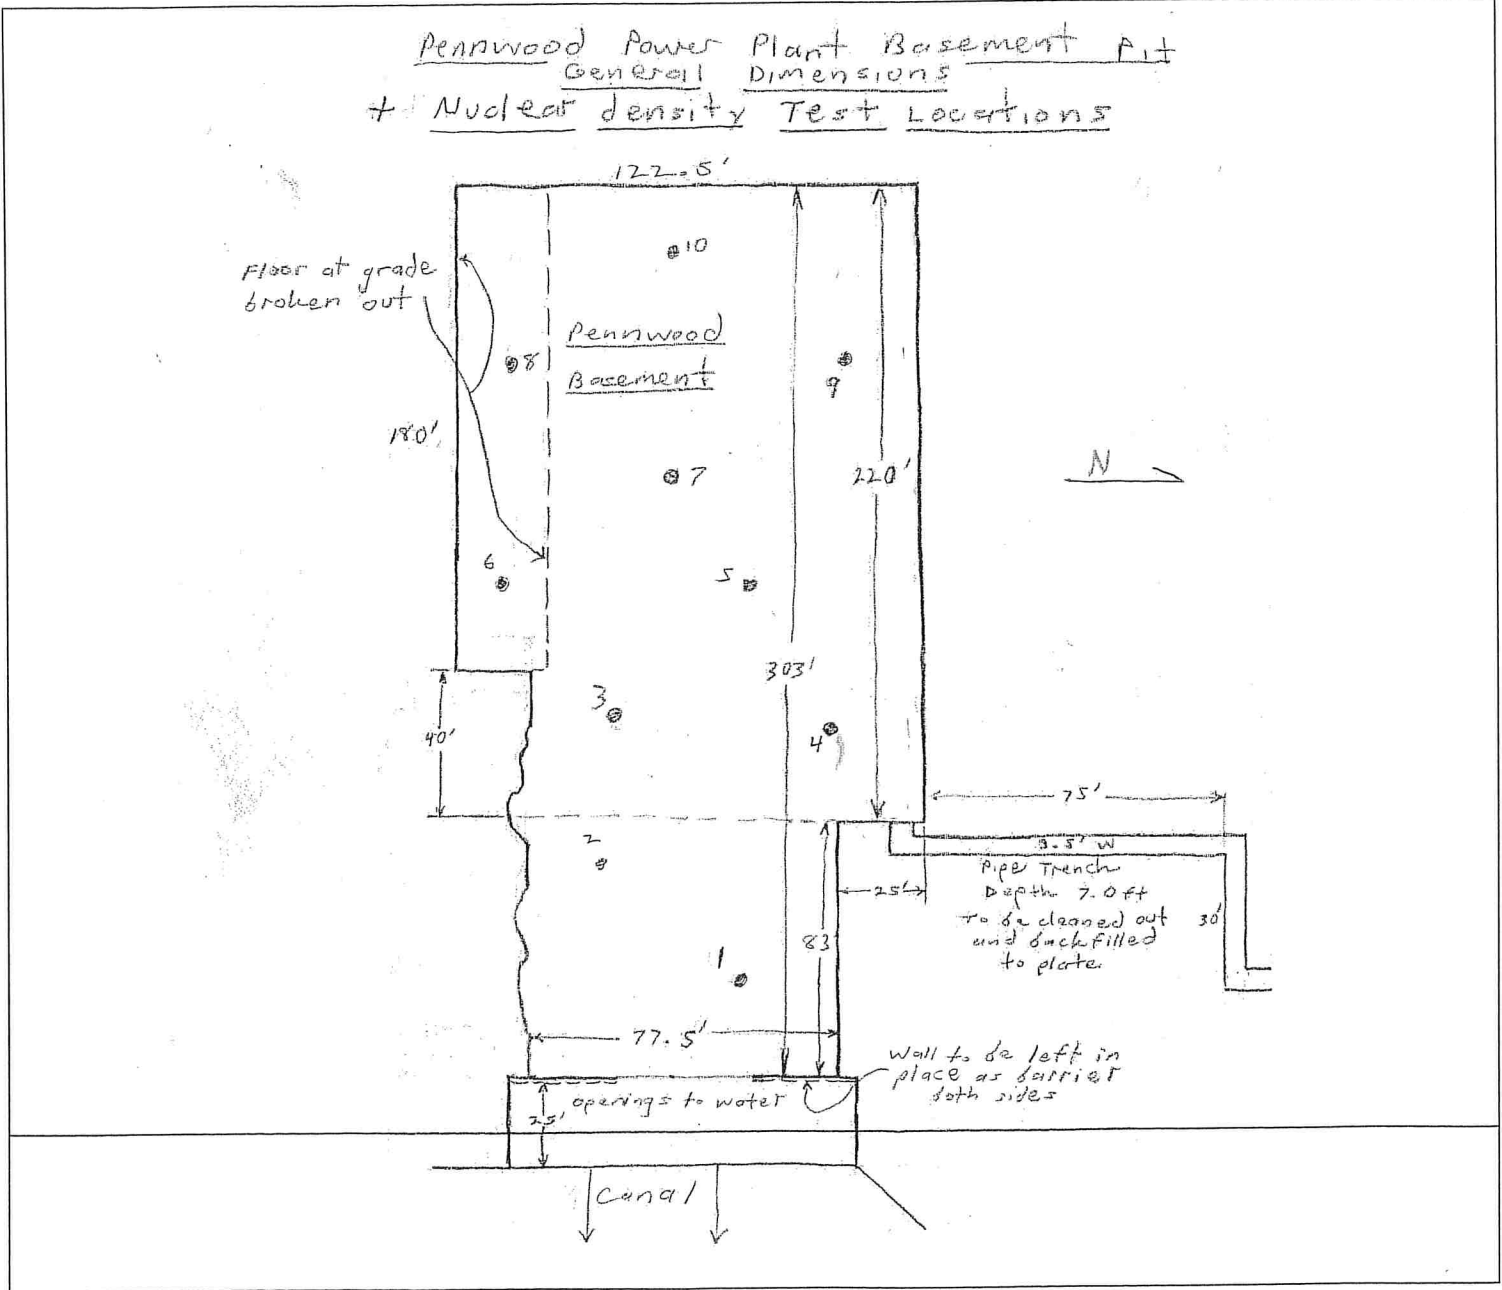 Pennwood Power Plant Basement Pit
General Dimensions
+ Nuclear density Test Locations
122.5'
10
Floor at grade
broken out
Pennwood
Basement
8
9
180'
7
220'
N
6
5
303'
3
40'
4
75'
2
3.5' W
Pipe Trench
25'
Depth 7.0 ft
to be cleaned out
30'
and backfilled
83'
to plate
1
77.5'
Wall to be left in
place as barrier
both sides
openings to water
25'
Canal